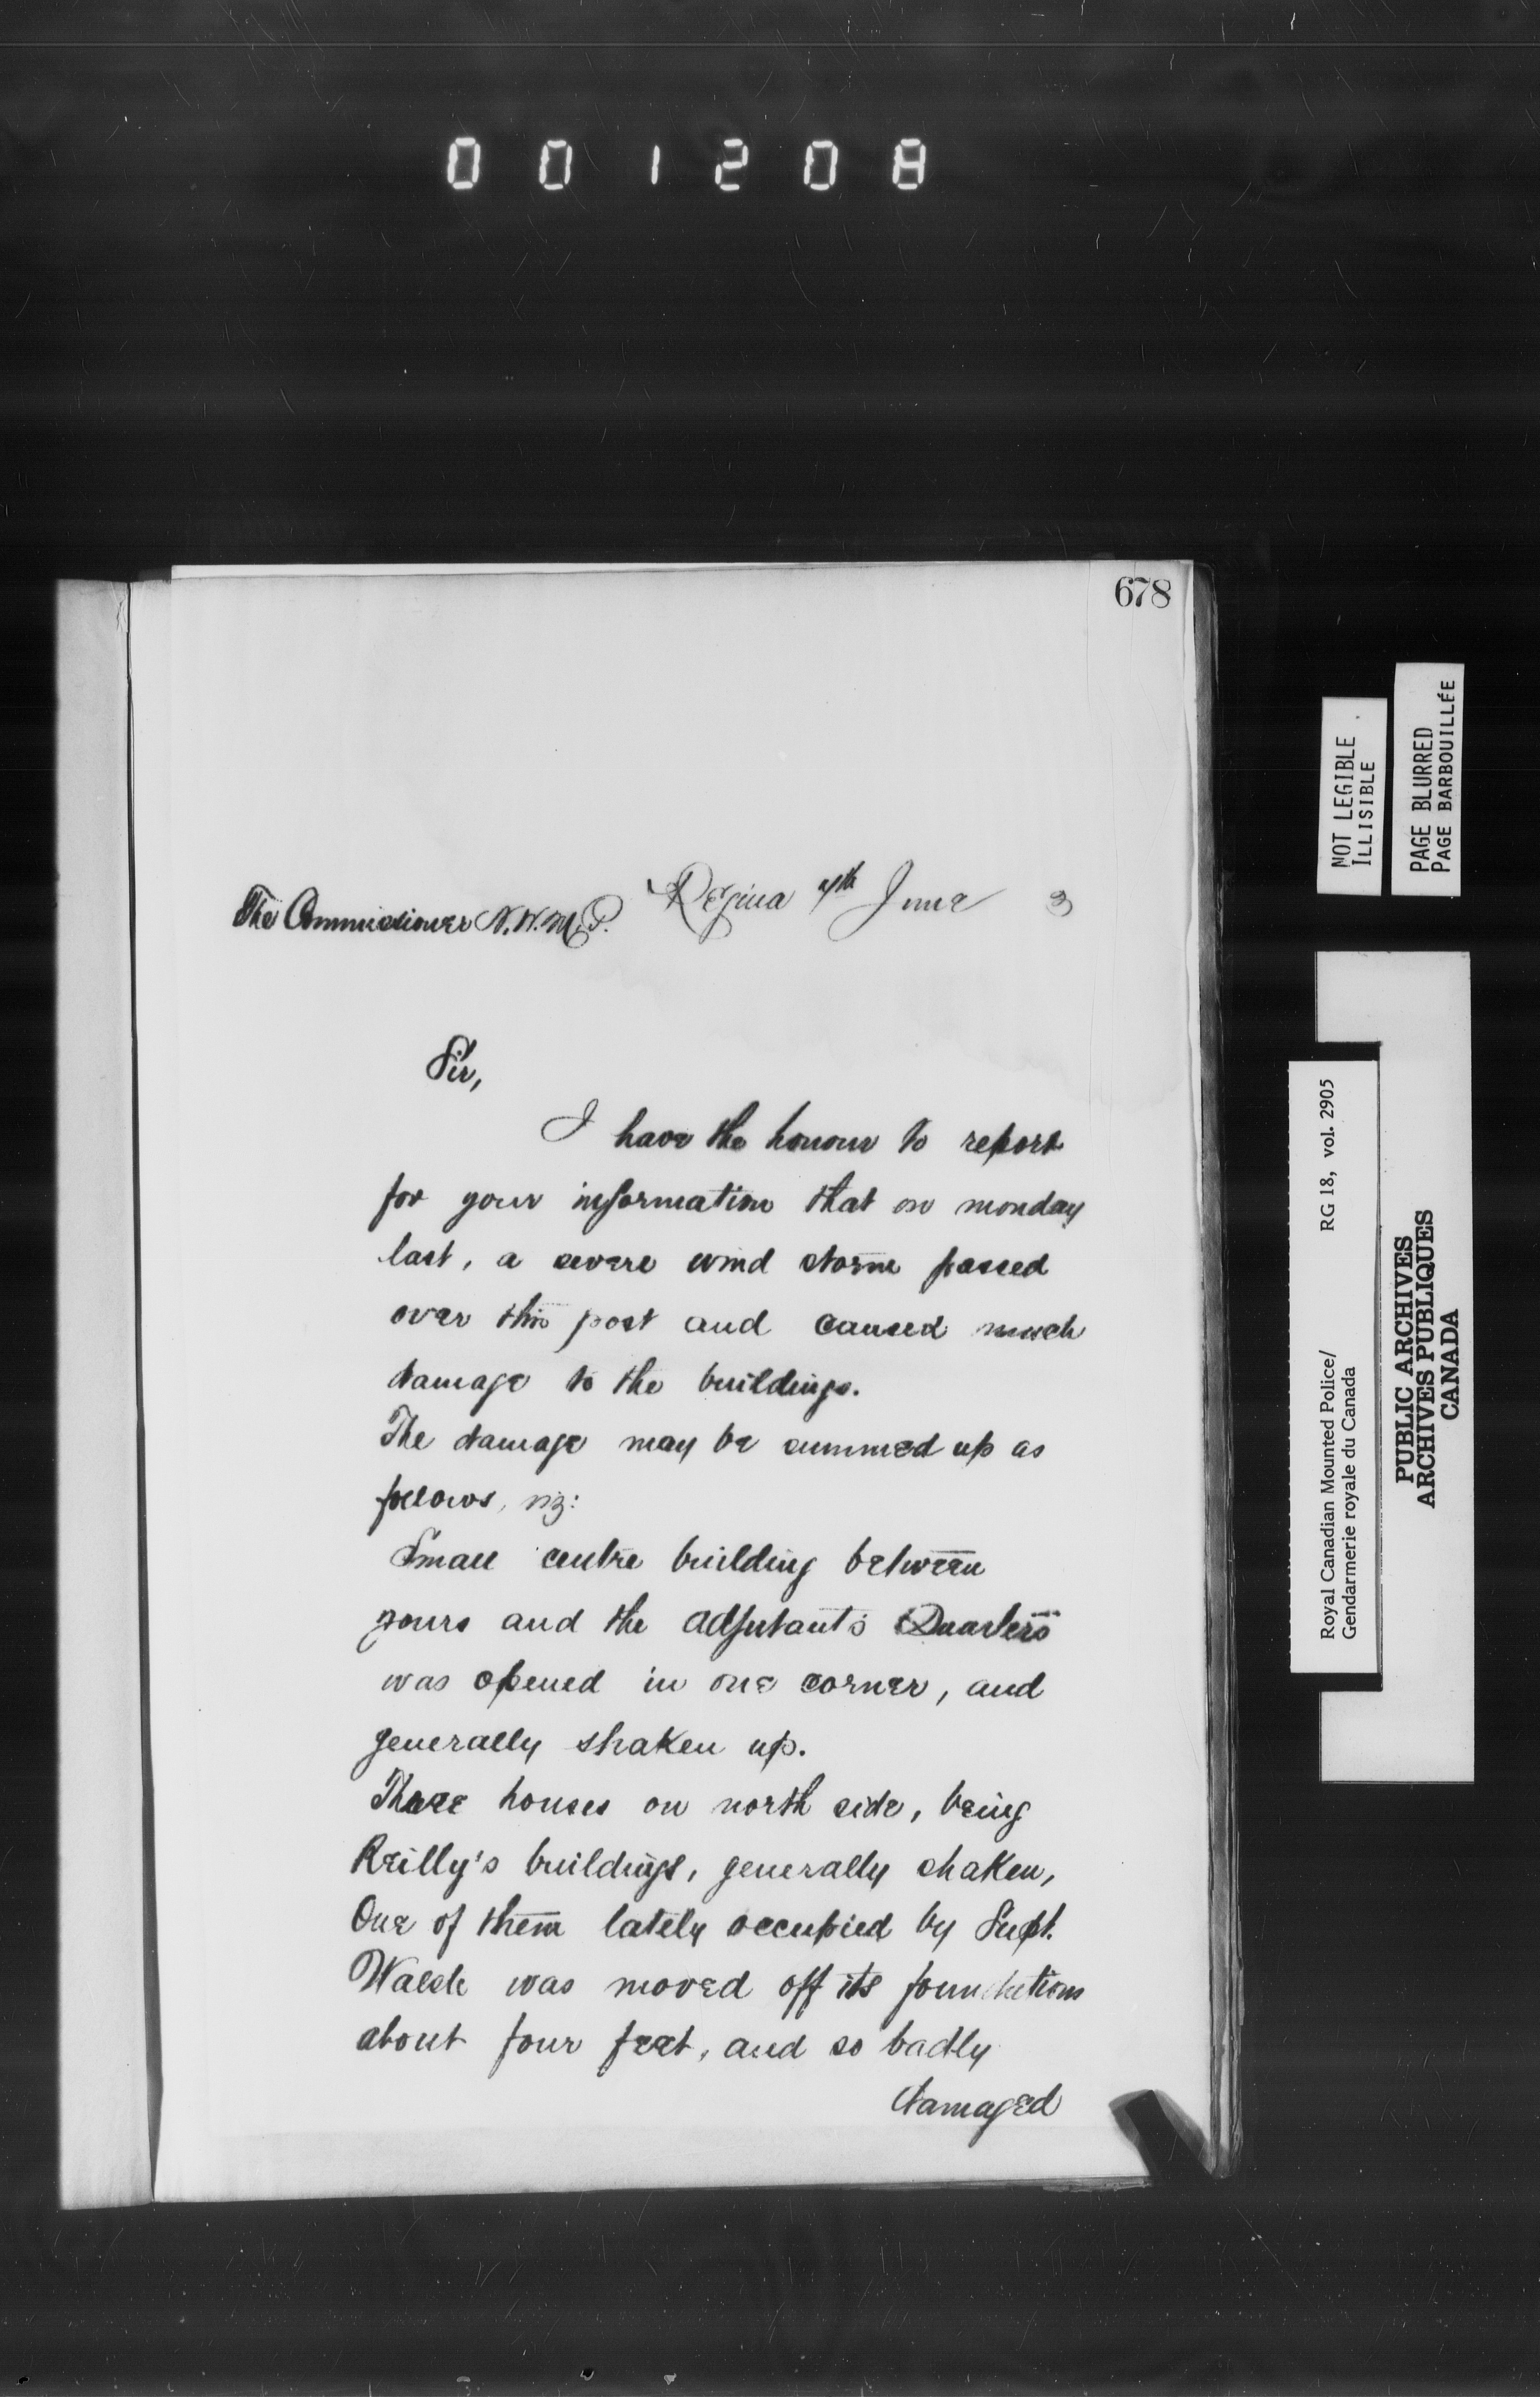 001208
678
The Commissioner N.W.M.P.
Regina 7th June 3
Sir,
I have the honour to report
for your information that on monday
last, a severe wind storm passed
over this post and caused much
damage to the buildings.
The damage may be summed up as
follows, viz:
Small centre building between
yours and the Adjutant's Quarters
was opened in one corner, and
generally shaken up.
Three houses on north side, being
Reilly's buildings, generally shaken,
One of them lately occupied by Supt.
Walsh was moved off its foundations
about four feet, and so badly
damaged
NOT LEGIBLE
ILLISIBLE
PAGE BLURRED
PAGE BARBOUILLÉE
Royal Canadian Mounted Police/ RG 18, vol. 2905
Gendarmerie royale du Canada
PUBLIC ARCHIVES
ARCHIVES PUBLIQUES
CANADA